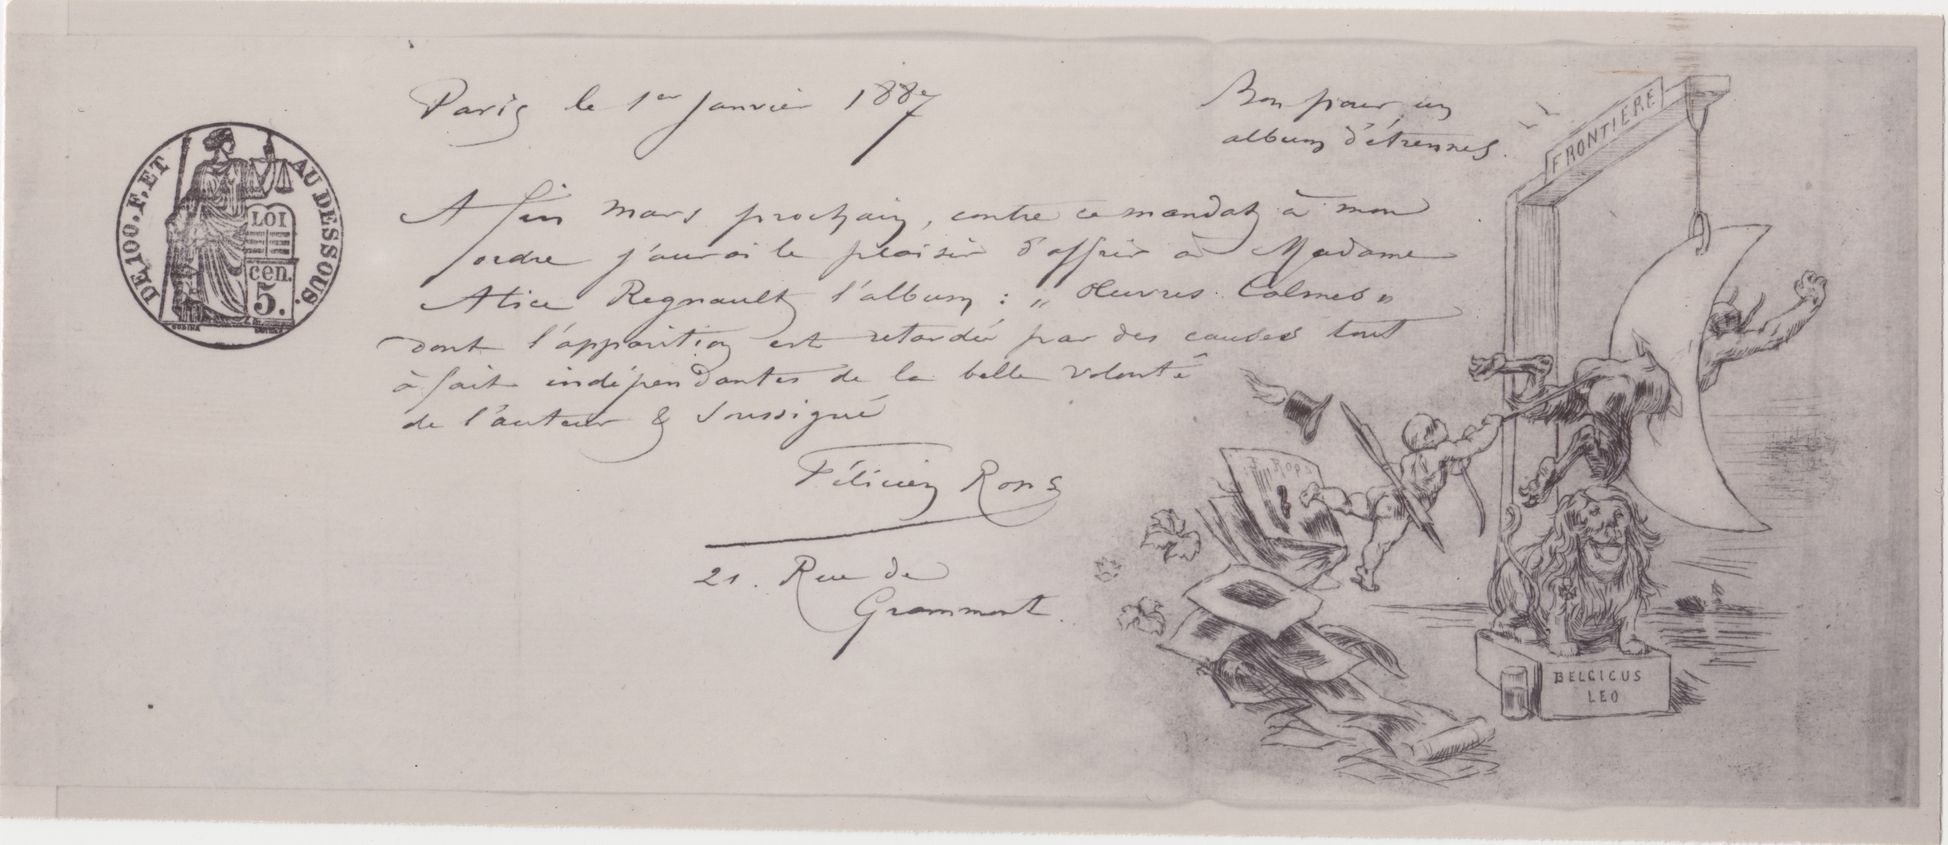 Paris le 1er Janvier 1887
Bon pour un
album d'étrennes.
A fin mars prochain, contre ce mandat à mon
ordre j'aurai le plaisir d'offrir à Madame
Alice Regnault l'album : „ Oeuvres Calmes "
dont l'apparition est retardée par des causes tout
à fait indépendantes de la belle volonté
de l'auteur & soussigné
Félicien Rops
21. Rue de
Grammont.
DE 100. F. ET AU DESSOUS.
LOI
5 cen.
FRONTIERE
F. ROPS
BELGICUS
LEO